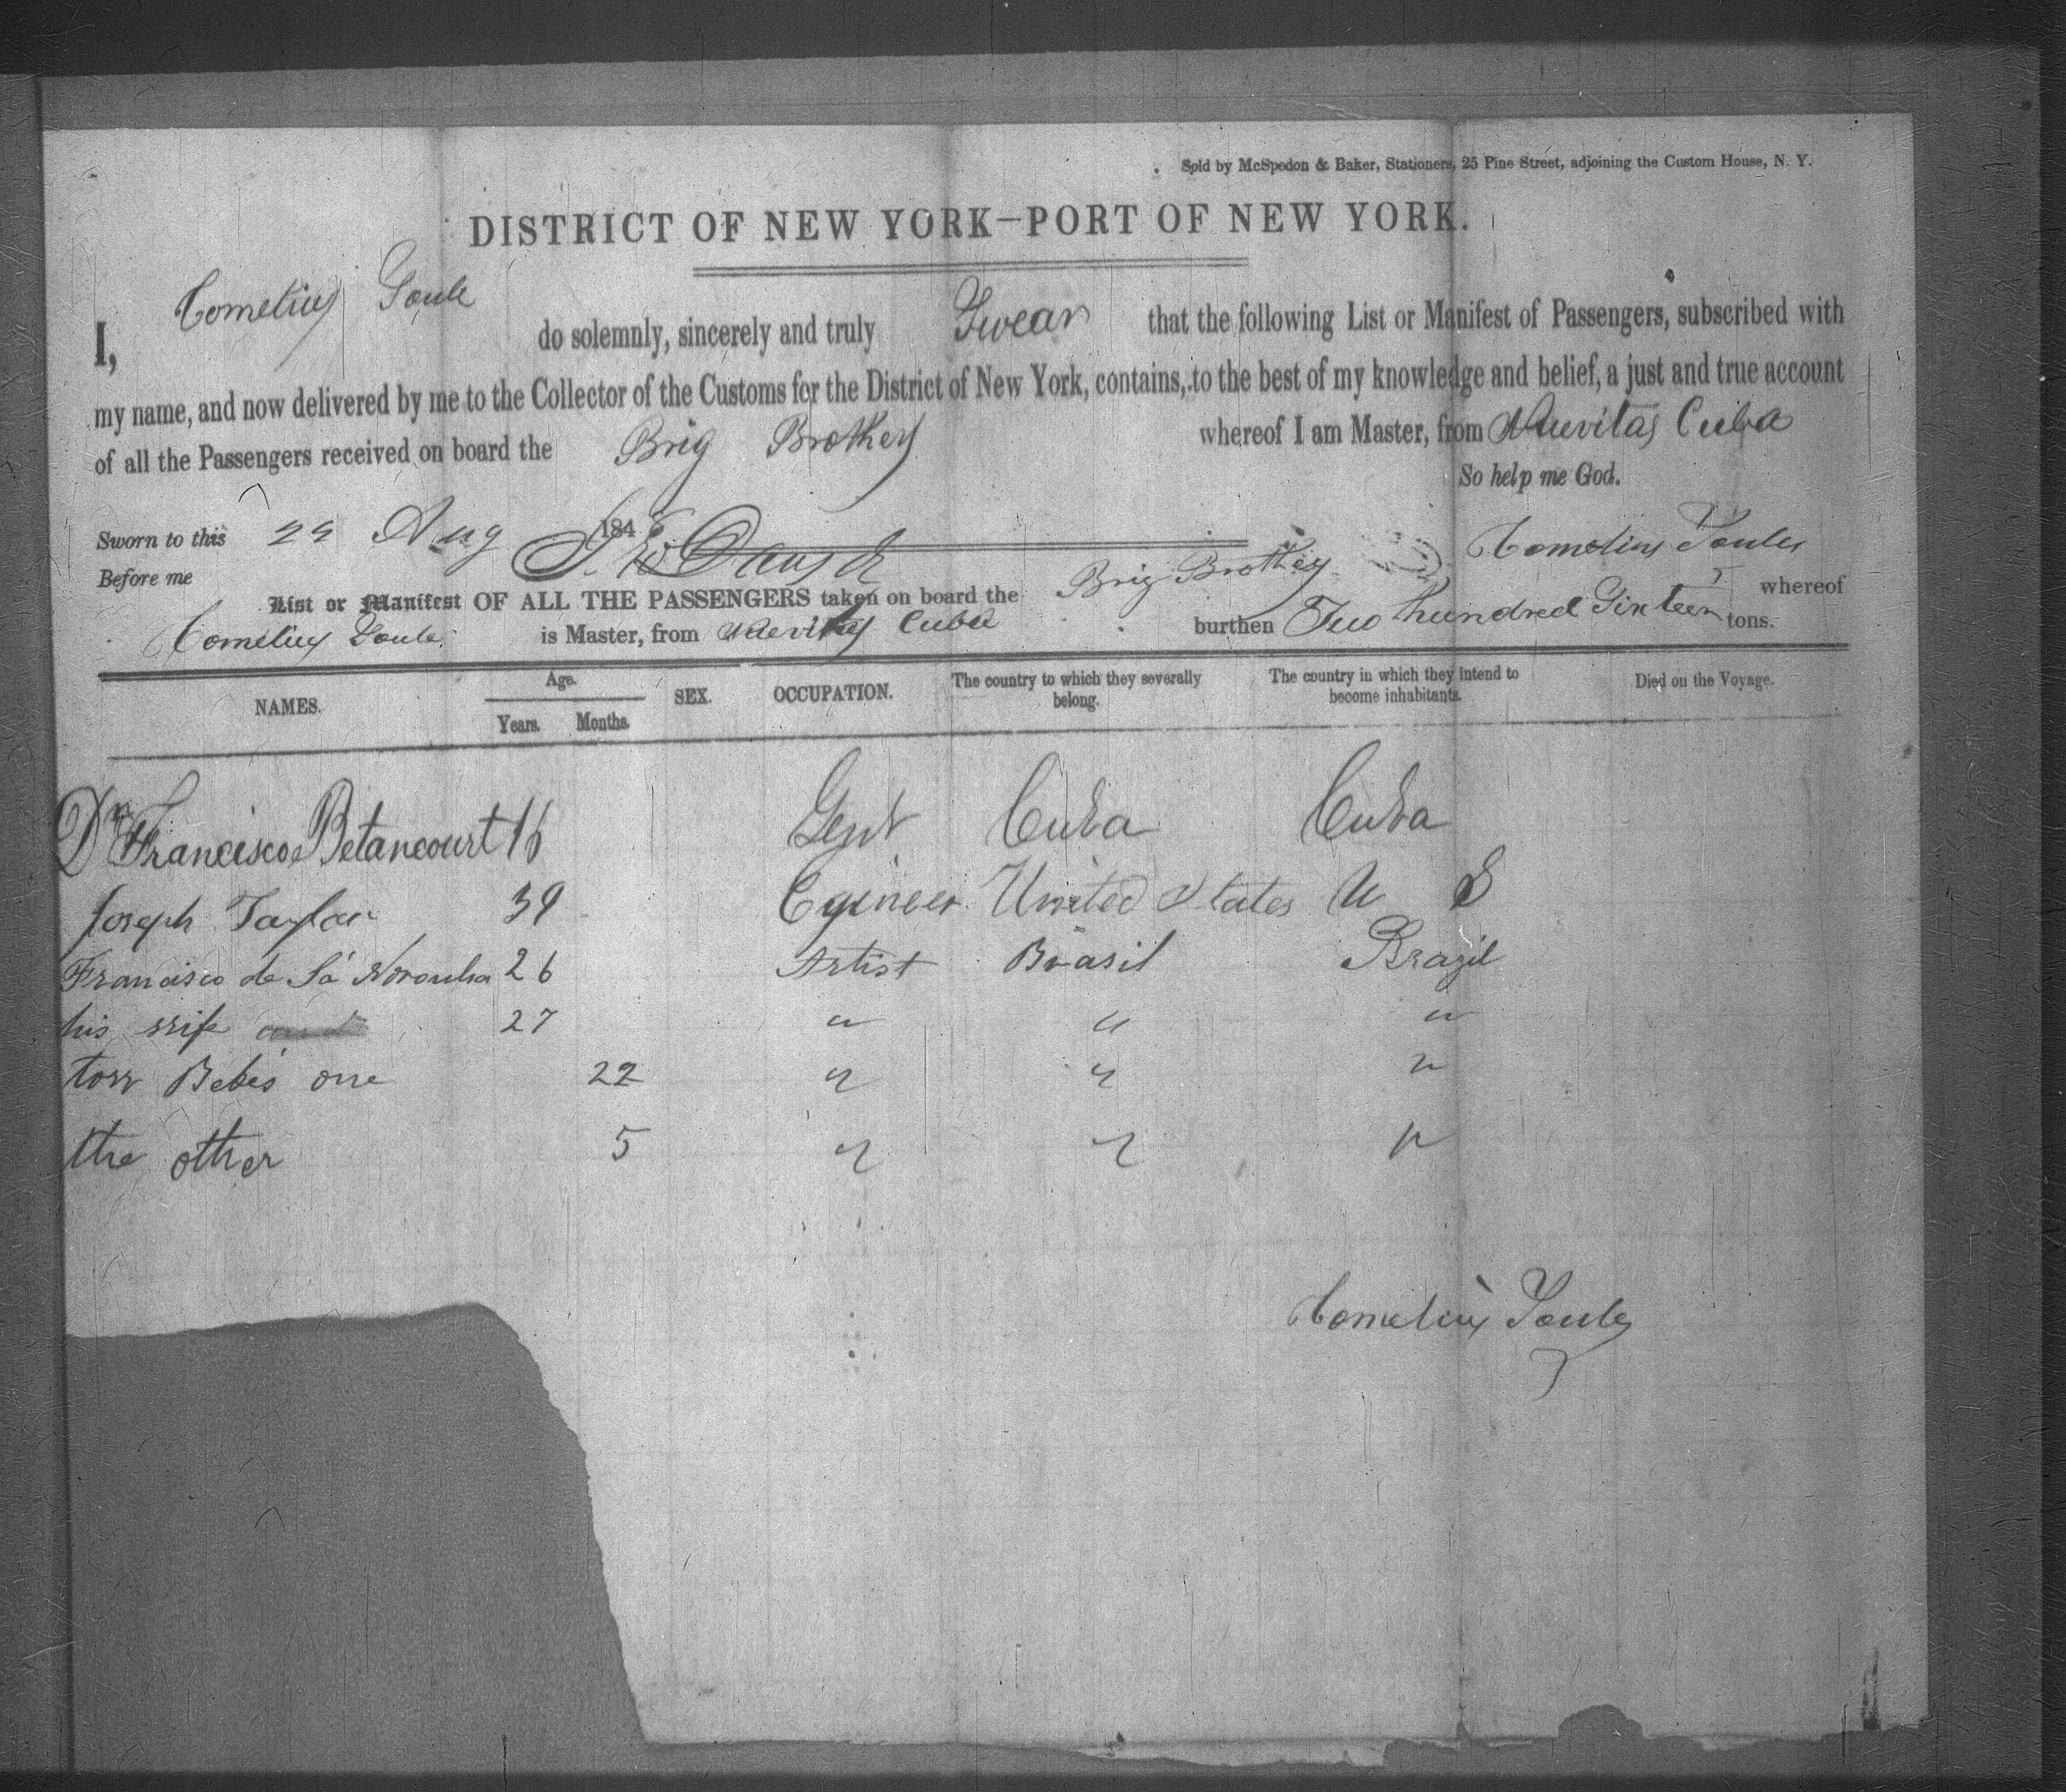 Sold by McSpedon & Baker, Stationers, 25 Pine Street, adjoining the Custom House, N. Y.
DISTRICT OF NEW YORK—PORT OF NEW YORK.
I, Cornelius Soule do solemnly, sincerely and truly Swear that the following List or Manifest of Passengers, subscribed with
my name, and now delivered by me to the Collector of the Customs for the District of New York, contains, to the best of my knowledge and belief, a just and true account
of all the Passengers received on board the Brig Brothers whereof I am Master, from Nuevitas Cuba
So help me God.
Sworn to this 29 Aug 184 Cornelius Soule
Before me
List or Manifest OF ALL THE PASSENGERS taken on board the Brig Brothers whereof
Cornelius Soule is Master, from Nuevitas Cuba burthen Two hundred Sixteen tons.
NAMES. Age. Years. Months. SEX. OCCUPATION. The country to which they severally belong. The country in which they intend to become inhabitants. Died on the Voyage.
Dn Francisco Betancourt 16 Gent Cuba Cuba
Joseph Taylor 39 Egineer United States U S
Francisco de Sá Noronha 26 Artist Brasil Brazil
his wife 27 " " "
tow Bebes one 22 " " "
the other 5 " " "
Cornelius Soule